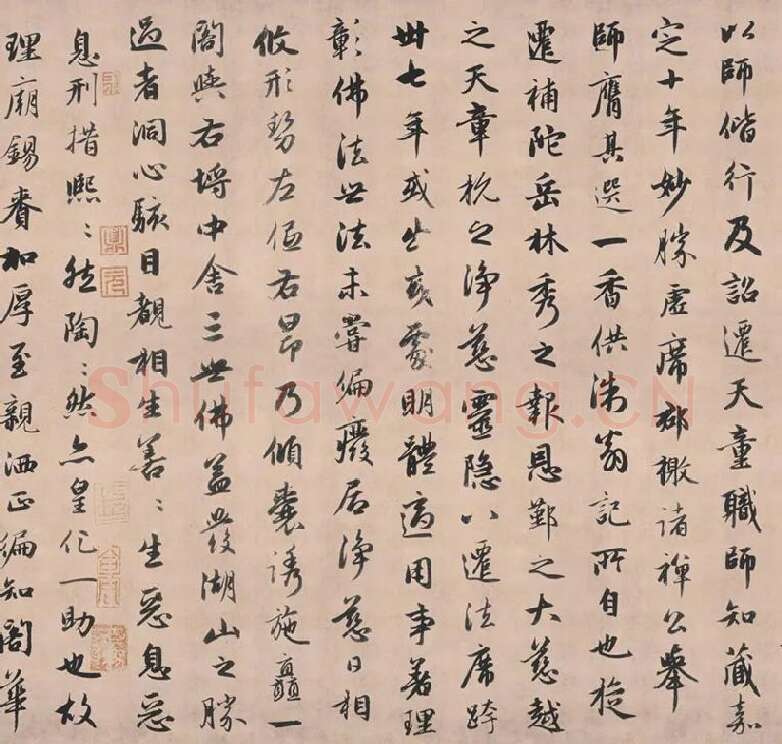 以師偕行及詔遷天童職師知藏嘉
定十年妙勝虛席郡檄諸禪公舉
師膺其選一香供洙翁記所自也旋
遷補陀岳林秀之報恩鄞之大慈越
之天章杭之淨慈靈隱八遷法席跨
卅七年或出或處明體適用事著理
彰佛法世法未嘗偏廢居淨慈日相
攸形勢左偪右昂乃傾囊誘施矗一
閣與右埒中舍三世佛盖發湖山之勝
過者洞心駭目覩相生善〻生惡息惡
息刑措熙〻然陶〻然亦皇化一助也故
理廟錫賚加厚至親洒正徧知閣華
Shufawang.CN